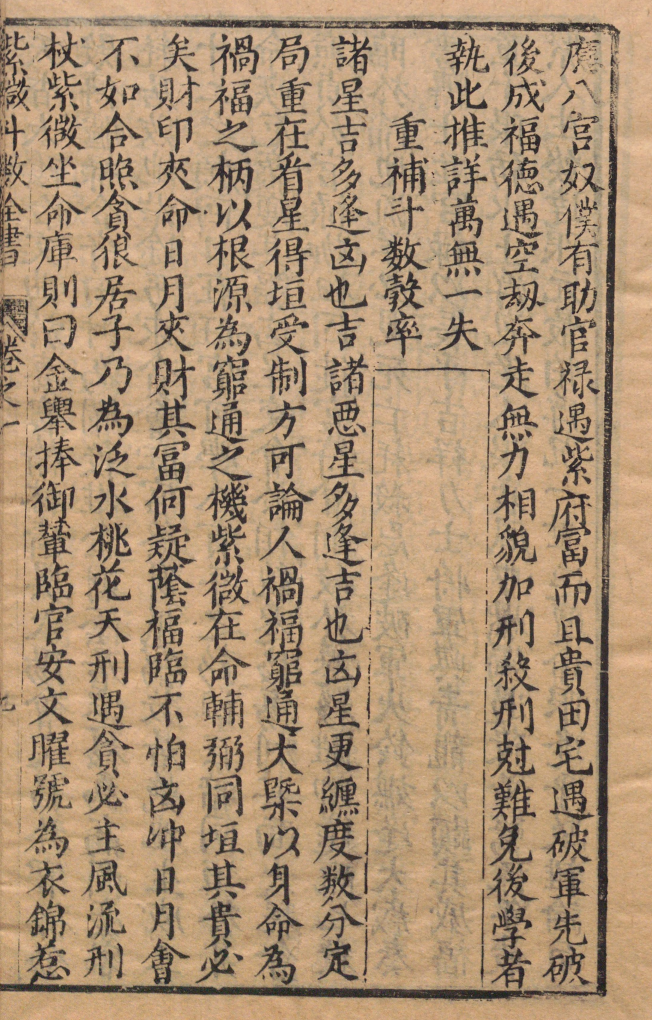 廣八宫奴僕有助官禄遇紫府富而且貴田宅遇破軍先破
後成福德遇空刼奔走無力相貌加刑殺刑尅難免後學者
執此推詳萬無一失
重補斗数彀率
諸星吉多逢凶也吉諸惡星多逢吉也凶星更纏度数分定
局重在看星得垣受制方可論人禍福窮通大槩以身命為
禍福之柄以根源為窮通之機紫微在命輔弼同垣其貴必
矣財印夾命日月夾財其冨何疑䕃福臨不怕凶冲日月會
不如合照貪狼居子乃為泛水桃花天刑遇貪必主風流刑
杖紫微坐命庫則曰金轝捧御輦臨官安文曜號為衣錦惹
紫微斗数全書 卷之一 九